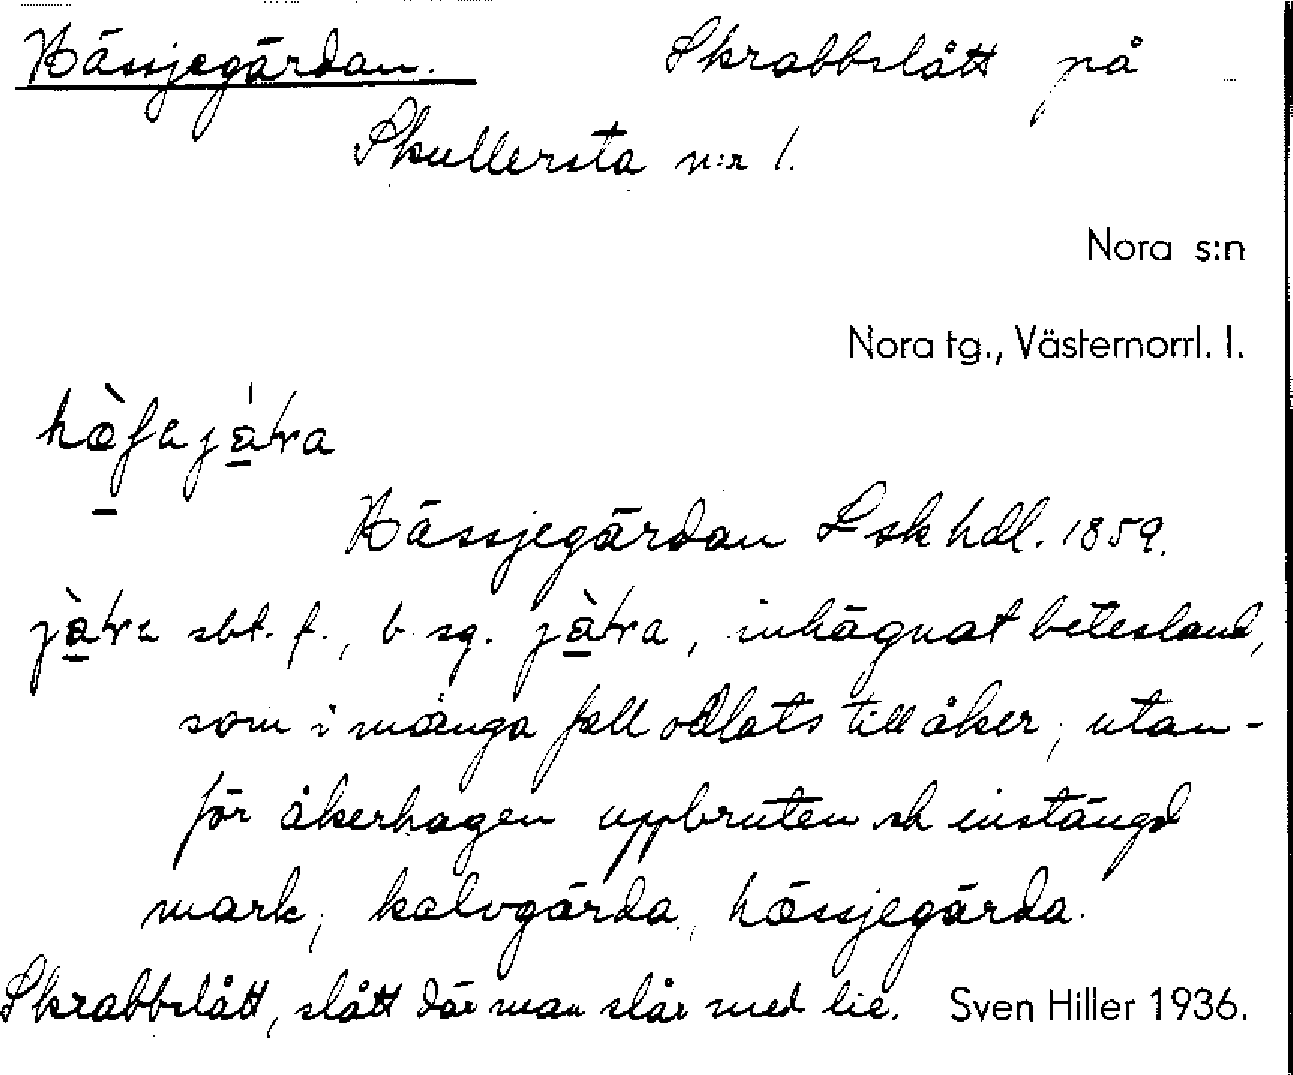 Hässjegärdan. Skrabbslått på
Skullersta n:r 1.
Nora s:n
Nora tg., Västernorrl. l.
Hässjegärdan L sk hdl. 1859.
sbt. f., b. sg. inhägnat betesland,
som i många fall odlats till åker; utan-
för åkerhagen uppbruten ock instängd
mark; kalvgärda, hässjegärda.
Skrabbslått, slått där man slår med lie. Sven Hiller 1936.